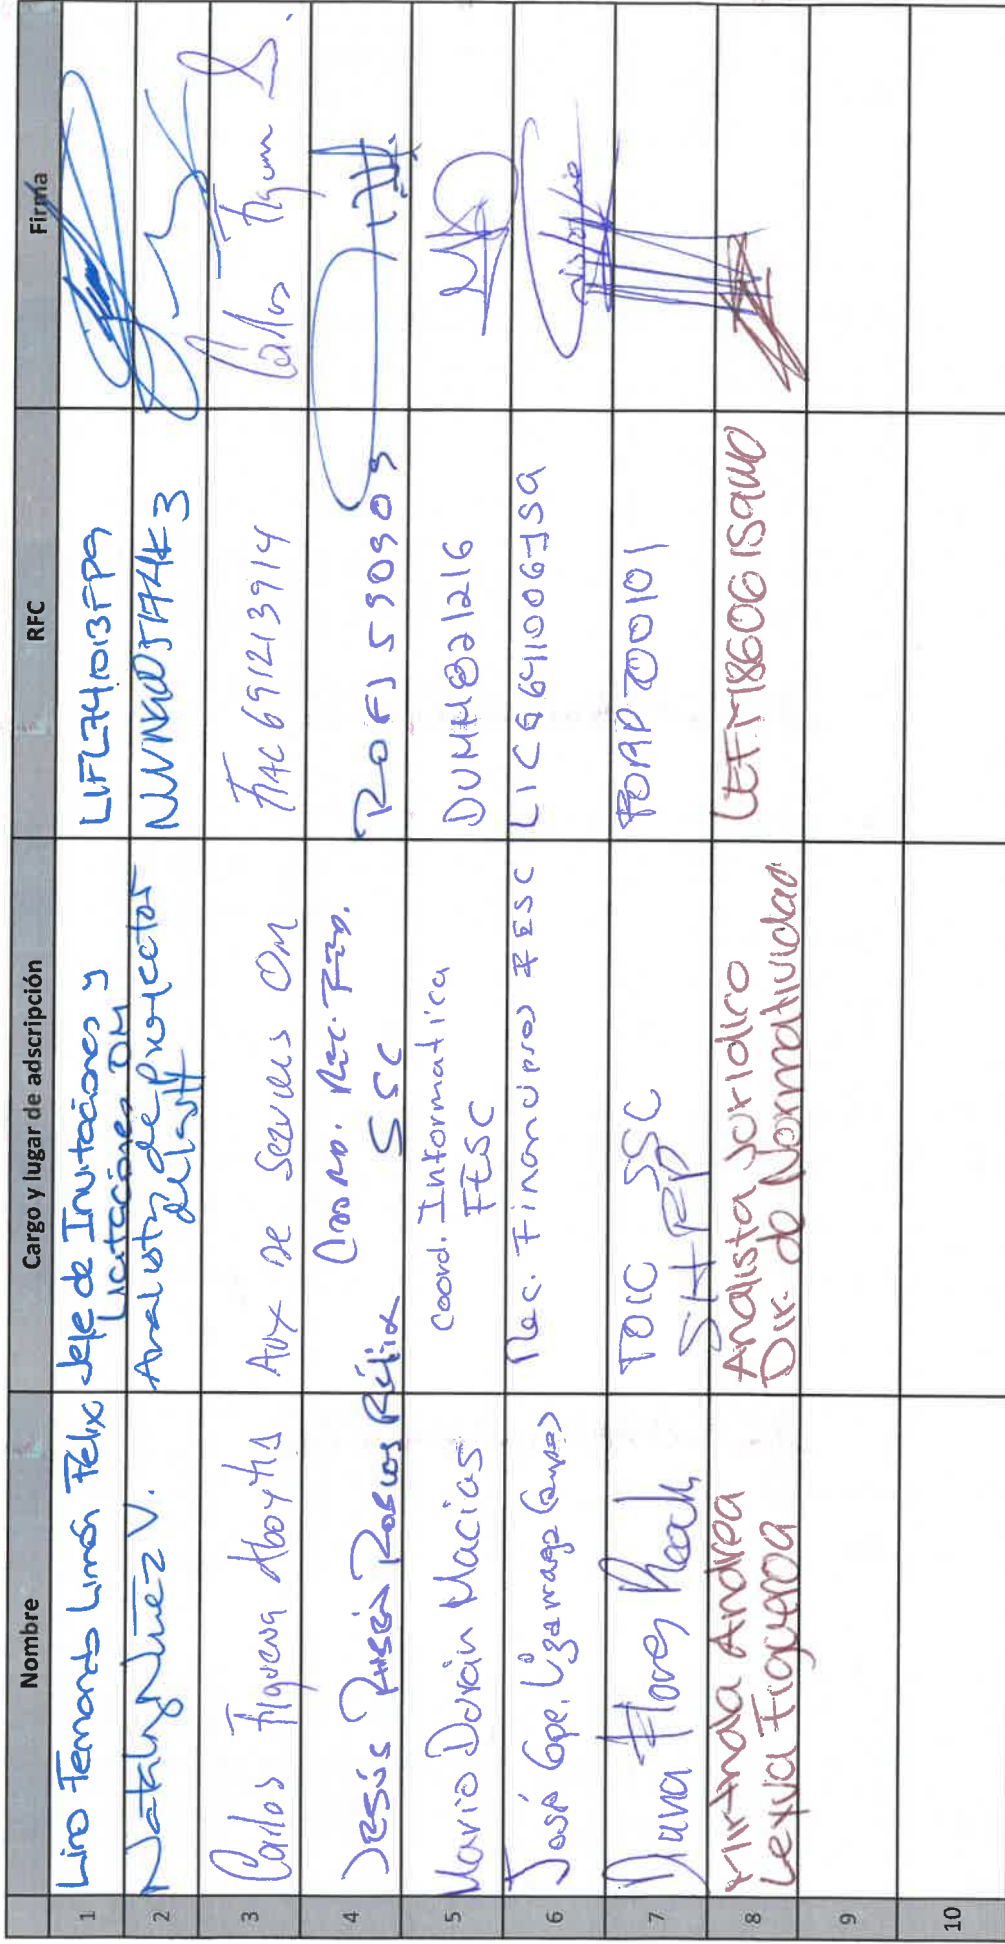 Nombre Cargo y lugar de adscripción RFC Firma
1 Lino Fernando Limón Félix Jefe de Invitaciones y Licitaciones OM LIFL741013FP9
2 Nataly Núñez V. Analista de Proyectos de la SH NUVN
3 Carlos Figueroa Aboytia Aux de Servicios OM FIAC691213914 Carlos Figueroa
4 Jesús Rubén Robles Félix Coord. Rec. Fin. SSC ROFJ590909
5 Mario Durán Macias Coord. Informatica FESC DUMM821216
6 José Gpe. Lizarraga Rec. Financieros FESC LICG641006JSA
7 Flores TOIC SSC SHRP
8 Mirtnda Andrea Leyva Figueroa Analista Juridico Dir. de Normatividad LEFM860615
9
10